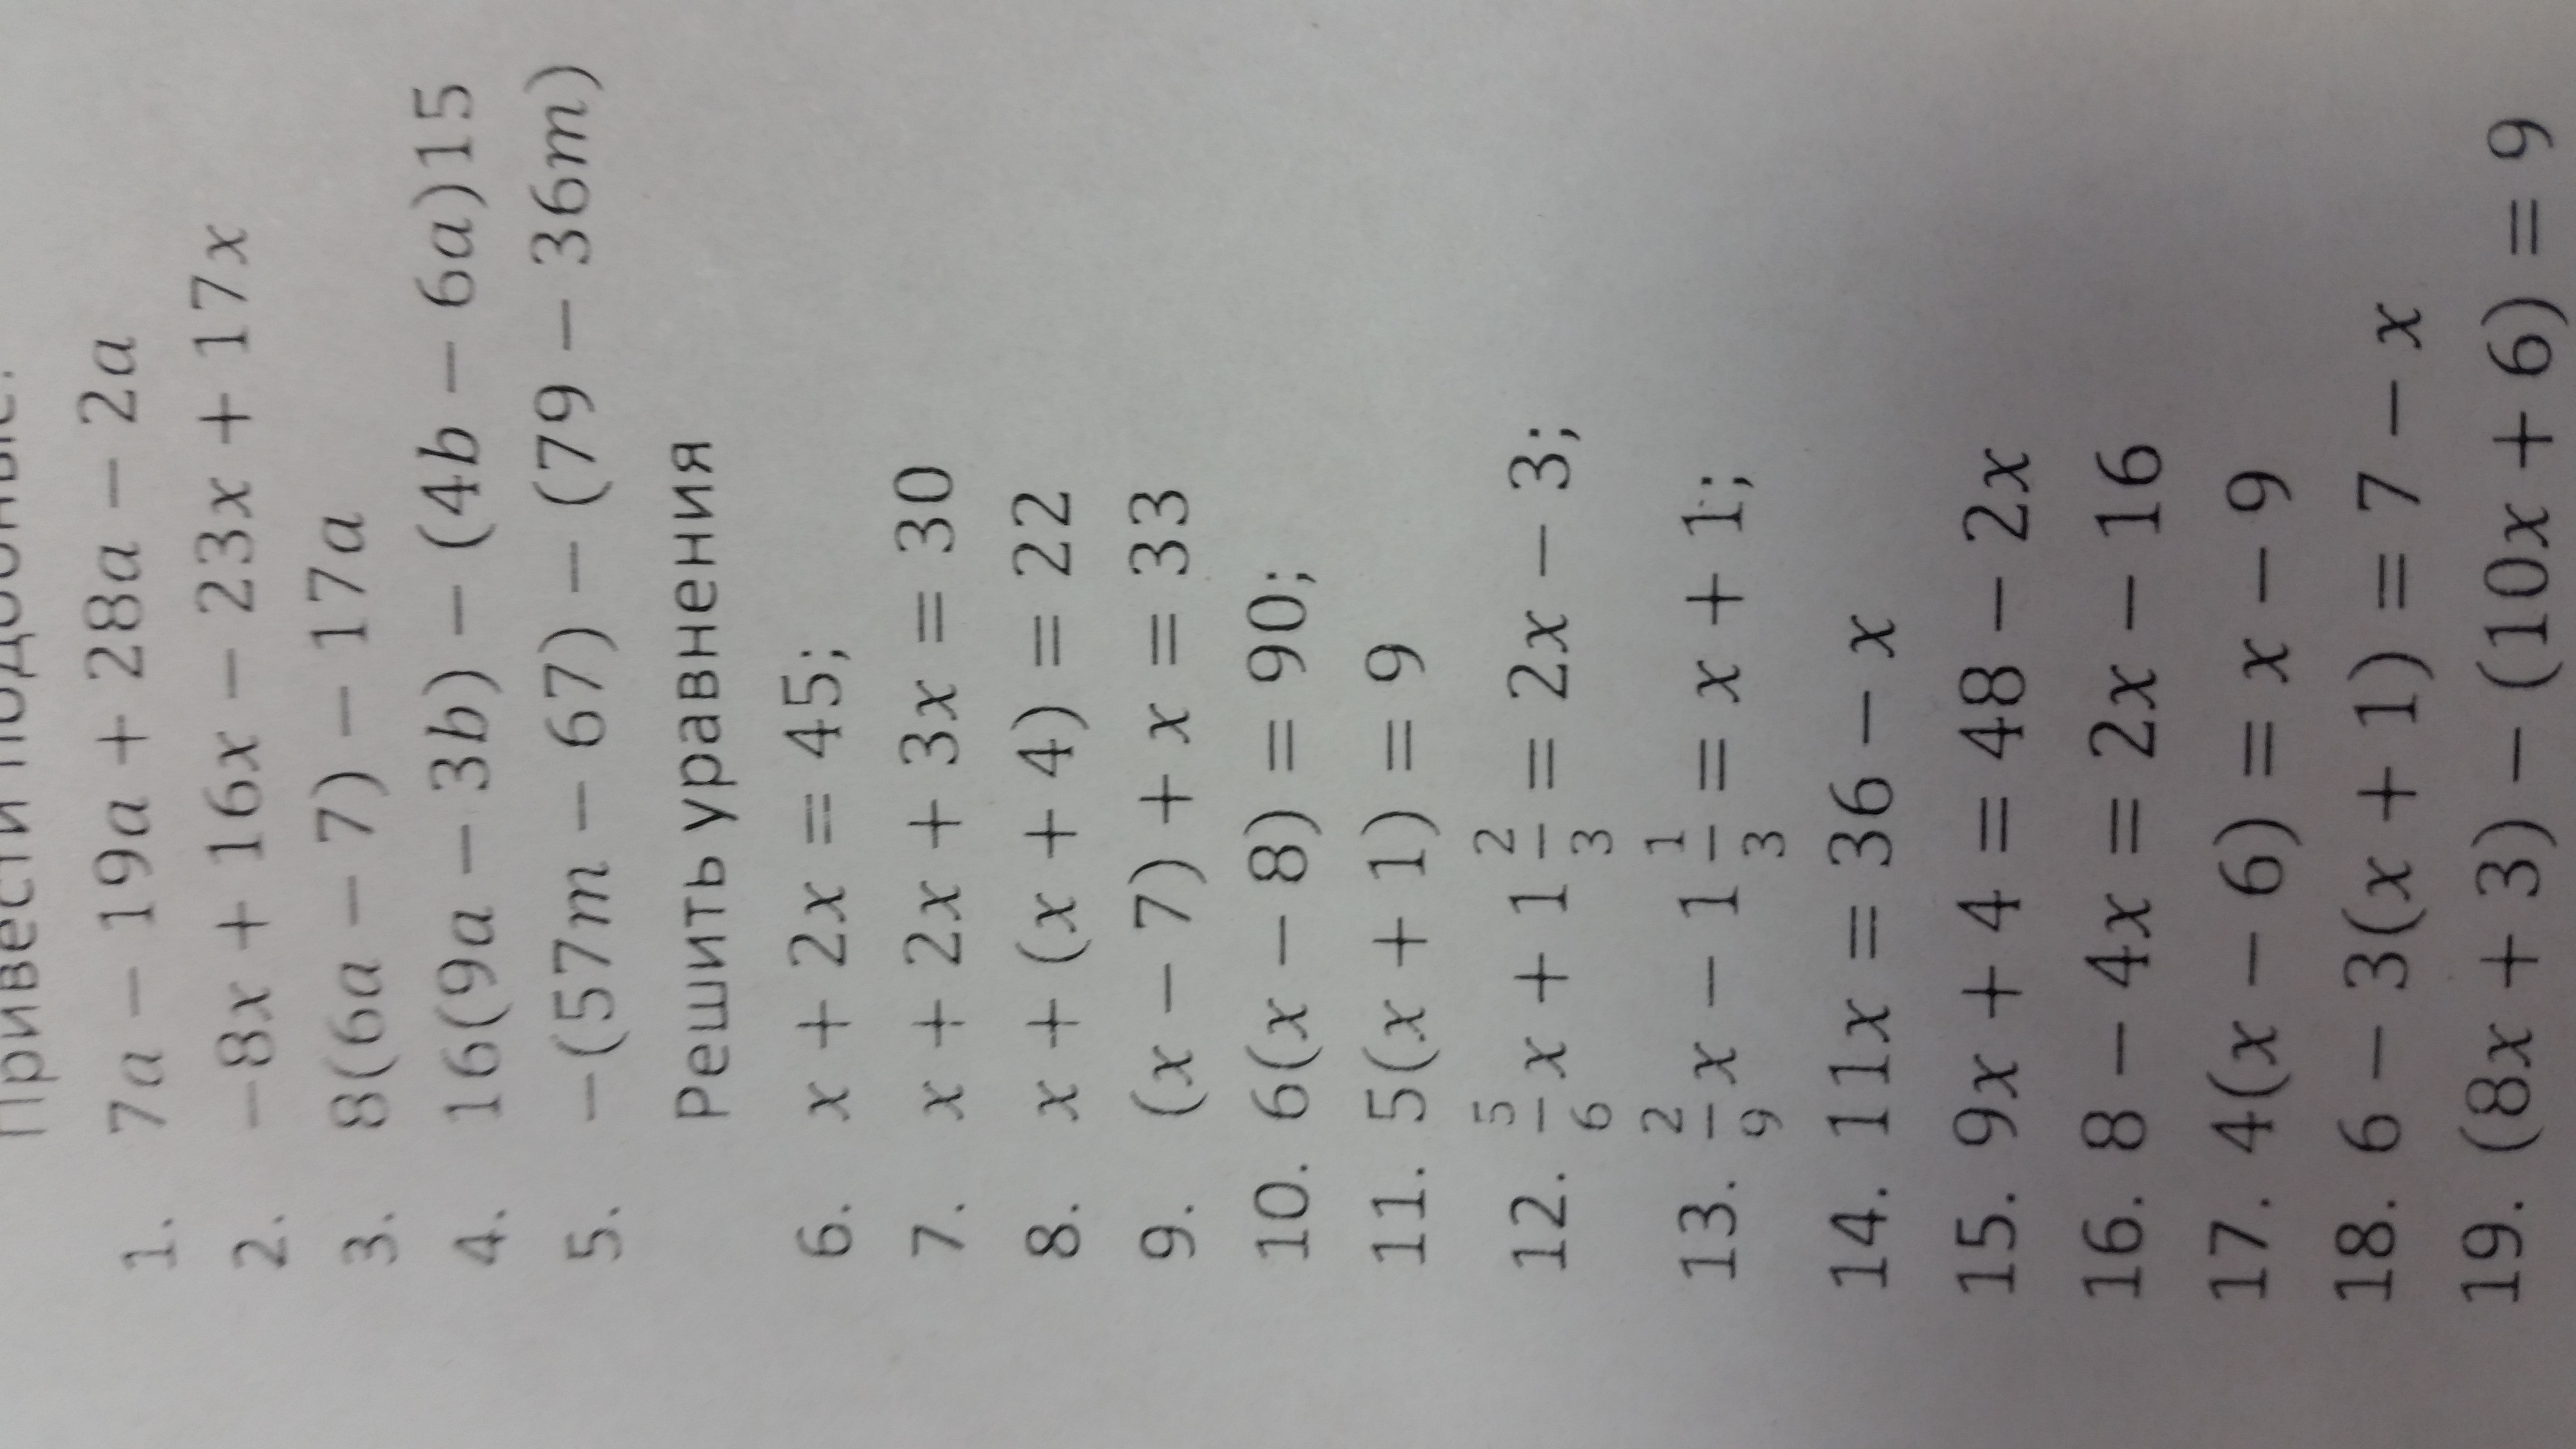 Привести подобные.
1. 7a − 19a + 28a − 2a
2. −8x + 16x − 23x + 17x
3. 8(6a − 7) − 17a
4. 16(9a − 3b) − (4b − 6a)15
5. −(57m − 67) − (79 − 36m)
Решить уравнения
6. x + 2x = 45;
7. x + 2x + 3x = 30
8. x + (x + 4) = 22
9. (x − 7) + x = 33
10. 6(x − 8) = 90;
11. 5(x + 1) = 9
12. 5/6 x + 1 2/3 = 2x − 3;
13. 2/9 x − 1 1/3 = x + 1;
14. 11x = 36 − x
15. 9x + 4 = 48 − 2x
16. 8 − 4x = 2x − 16
17. 4(x − 6) = x − 9
18. 6 − 3(x + 1) = 7 − x
19. (8x + 3) − (10x + 6) = 9